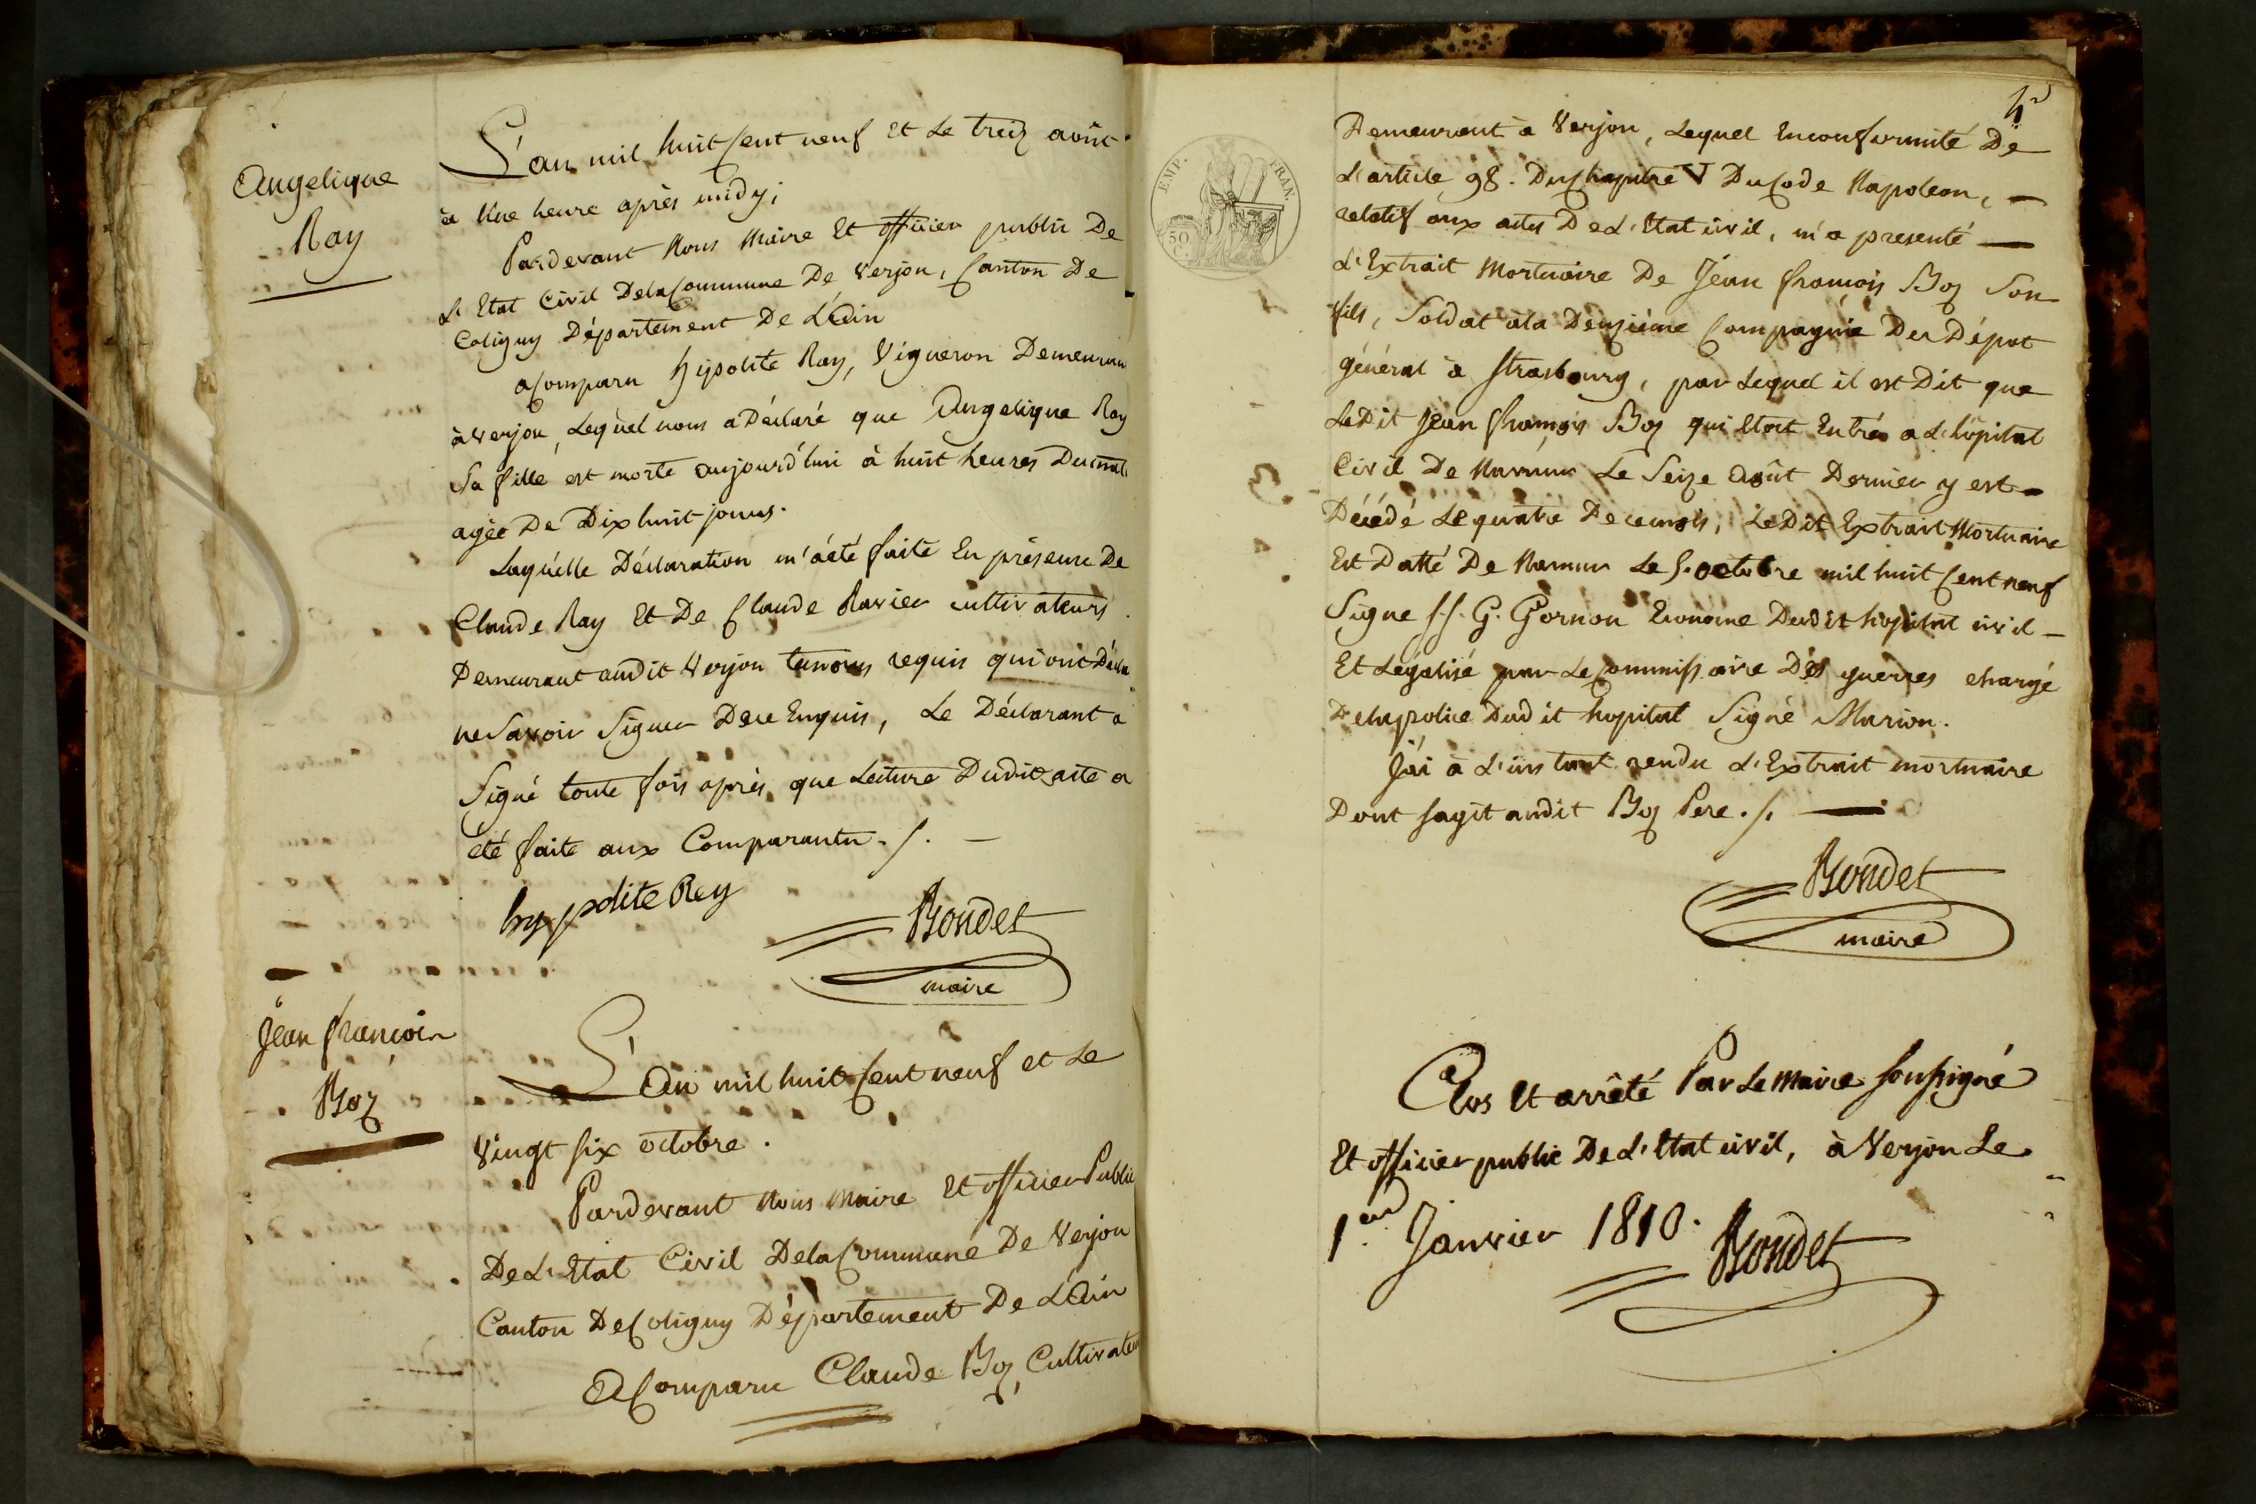 Angelique
Ray
L'an mil huit cent neuf et le treiz août
à Une heure après midy;
Pardevant Nous Maire Et officier public De
L'Etat Civil DelaCommune De Verjon, Canton De
Coligny Département De L'Ain
aComparu hÿpolite Ray, Vigneron Demeurant
àVerjon, Lequel nous a Déclaré que Angelique Ray
Sa fille est morte aujourd'hui à huit heures Dumat
agée De Dix huit jours.
Laquelle Déclaration m'àété faite En présence De
Claude Ray Et De Claude Ravier cultivateurs
Demeurant audit Verjon temoins requis qui ont Décla
neSavoir Signer Dece Enquis, Le Déclarant a
Signé toute fois après que Lecture Dudit acte a
été faite aux Comparants ./. —
hyppolite Rey
Bondet
maire
Jean françois
Boz
L'an mil huit cent neuf et Le
Vingt six octobre.
Pardevant Nous Maire Et officier Public
De L'Etat Civil DelaCommune De Verjon
Canton DeColigny Département De L'Ain
AComparu Claude Boz, Cultivateur
EMP. FRAN.
50 C.
Demeurant à Verjon, Lequel Enconformité De
L'article 98. DuChapitre V DuCode Napoleon, —
relatif aux actes De L'Etat civil, m'a presenté —
L'Extrait Mortuaire De Jéan françois Boz Son
fils, Soldat àla Deuxiéme Compagnie Du Dépot
général à Strasbourg, par Lequel il est Dit que
LeDit Jean françois Boz qui Etoit Entré a L'hôpital
Civil De Namur Le Seize Août Dernier y est —
Décedé Le quatre Decemois, LeDit Extrait Mortuaire
Est Datté De Namur Le 5. octobre mil huit Cent neuf
Signe f.f. G. Gornon Econome Dudit hopital civil —
Et Légalisé par LeCommissaire Dès guerres chargé
Delapolice Dudit hopital Signé Marion.
J'ai à L'instant rendu L'Extrait mortuaire
Dont sagit audit Boz Pere ./. —
Bondet
maire
Clos Et arrêté Par Le Maire Soussigné
Et officier public De L'Etat civil, à Verjon Le
1.er Janvier 1810.
Bondet